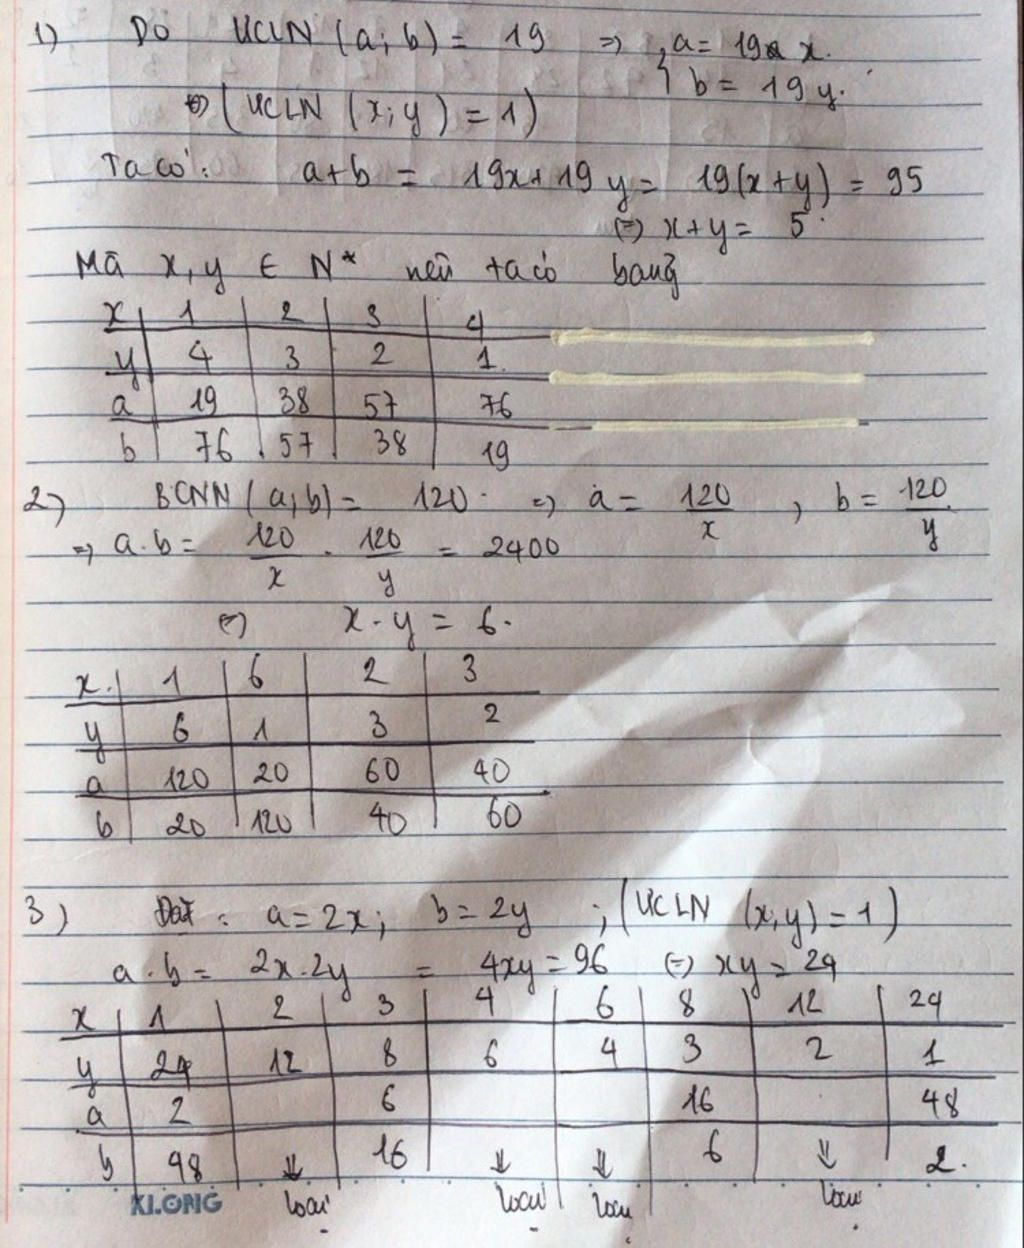 1) Do ƯCLN (a; b) = 19 => { a = 19 x.
b = 19 y.
<=> (ƯCLN (x; y) = 1)
Ta có: a+b = 19x + 19y = 19(x+y) = 95
<=> x+y = 5
Mà x, y ∈ N* nên ta có bảng
x | 1 | 2 | 3 | 4
y | 4 | 3 | 2 | 1
a | 19 | 38 | 57 | 76
b | 76 | 57 | 38 | 19
2) BCNN (a; b) = 120. => a = 120/x , b = 120/y
=> a.b = 120/x . 120/y = 2400
<=> x.y = 6.
x | 1 | 6 | 2 | 3
y | 6 | 1 | 3 | 2
a | 120 | 20 | 60 | 40
b | 20 | 120 | 40 | 60
3) Đặt : a = 2x; b = 2y ; (ƯCLN (x,y) = 1)
a.b = 2x.2y = 4xy = 96 <=> xy = 24
x | 1 | 2 | 3 | 4 | 6 | 8 | 12 | 24
y | 24 | 12 | 8 | 6 | 4 | 3 | 2 | 1
a | 2 | | 6 | | | 16 | | 48
b | 48 | ⇓ | 16 | ⇓ | ⇓ | 6 | ⇓ | 2.
KLONG loại loại loại loại